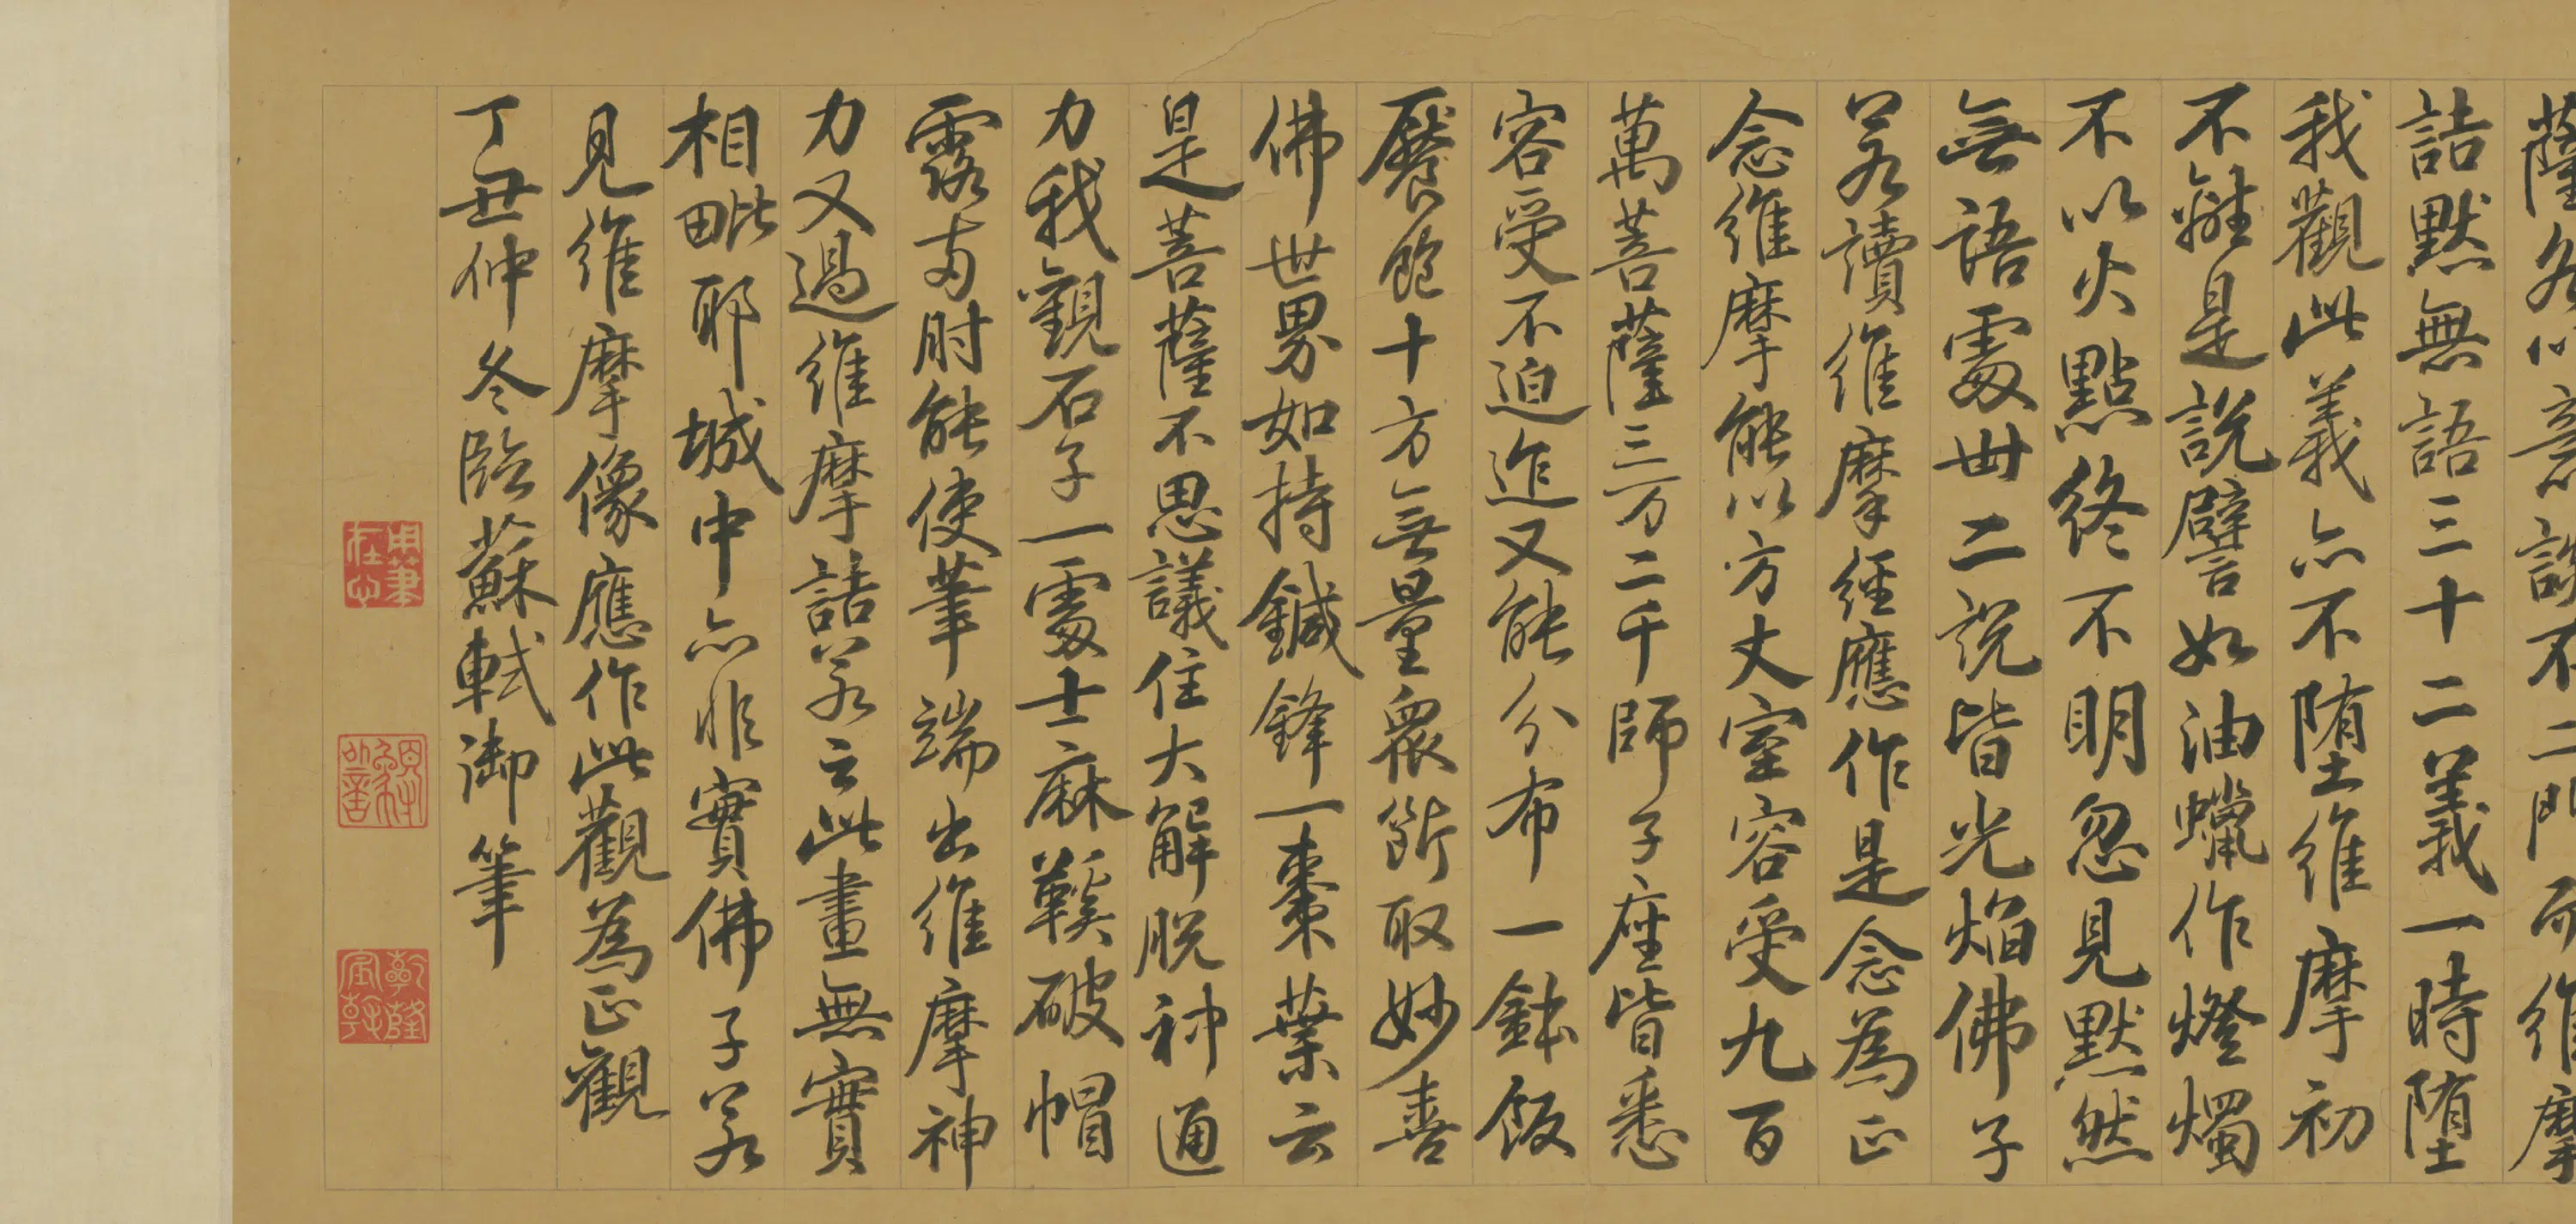 薩各以意談不二門而維摩
詰黙無語三十二義一時堕
我觀此義亦不堕維摩初
不離是說譬如油蠟作燈燭
不以火點終不明忽見黙然
無語處卅二說皆光焰佛子
若讀維摩經應作是念為正
念維摩能以方丈室容受九百
萬菩薩三万二千師子座皆悉
容受不迫迮又能分布一鉢飯
饜飽十方無量衆斷取妙喜
佛世界如持鍼鋒一棗葉云
是菩薩不思議住大解脫神通
力我觀石子一處士麻鞵破帽
露兩肘能使筆端出維摩神
力又過維摩詰若云此畫無實
相毗耶城中亦非實佛子若
見維摩像應作此觀為正觀
丁丑仲冬臨蘇軾御筆
用筆在心
乾隆宸翰